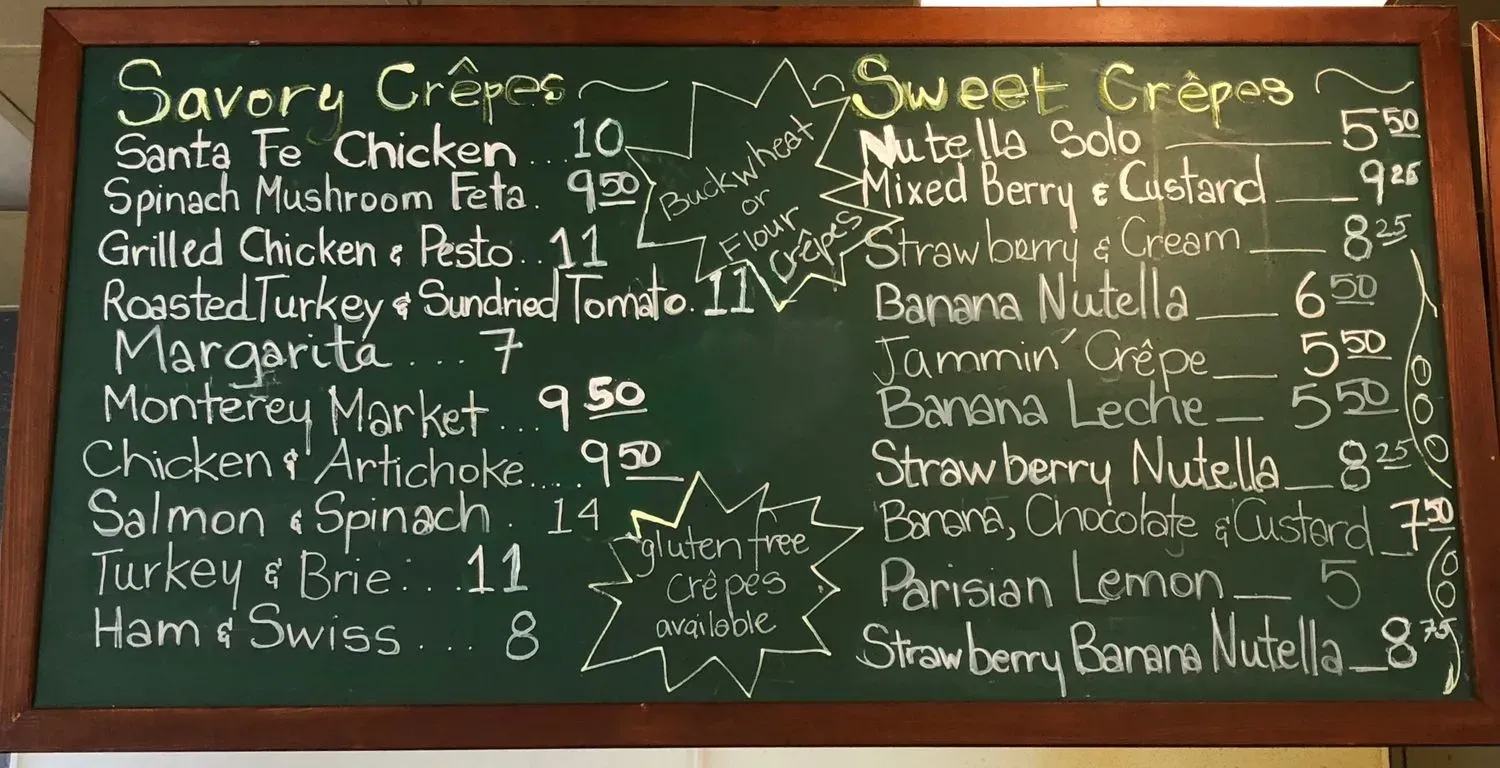 Savory Crêpes
Santa Fe Chicken ... 10
Spinach Mushroom Feta. 9 50
Grilled Chicken & Pesto.. 11
Roasted Turkey & Sundried Tomato. 11
Margarita .... 7
Monterey Market ... 9 50
Chicken & Artichoke.... 9 50
Salmon & Spinach . 14
Turkey & Brie... 11
Ham & Swiss .... 8
Buckwheat
or
Flour
Crêpes
gluten free
Crêpes
available
Sweet Crêpes
Nutella Solo 5 50
Mixed Berry & Custard 9 25
Strawberry & Cream 8 25
Banana Nutella 6 50
Jammin' Crêpe 5 50
Banana Leche 5 50
Strawberry Nutella 8 25
Banana, Chocolate & Custard 7 50
Parisian Lemon 5
Strawberry Banana Nutella 8 75